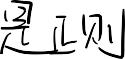 是正则